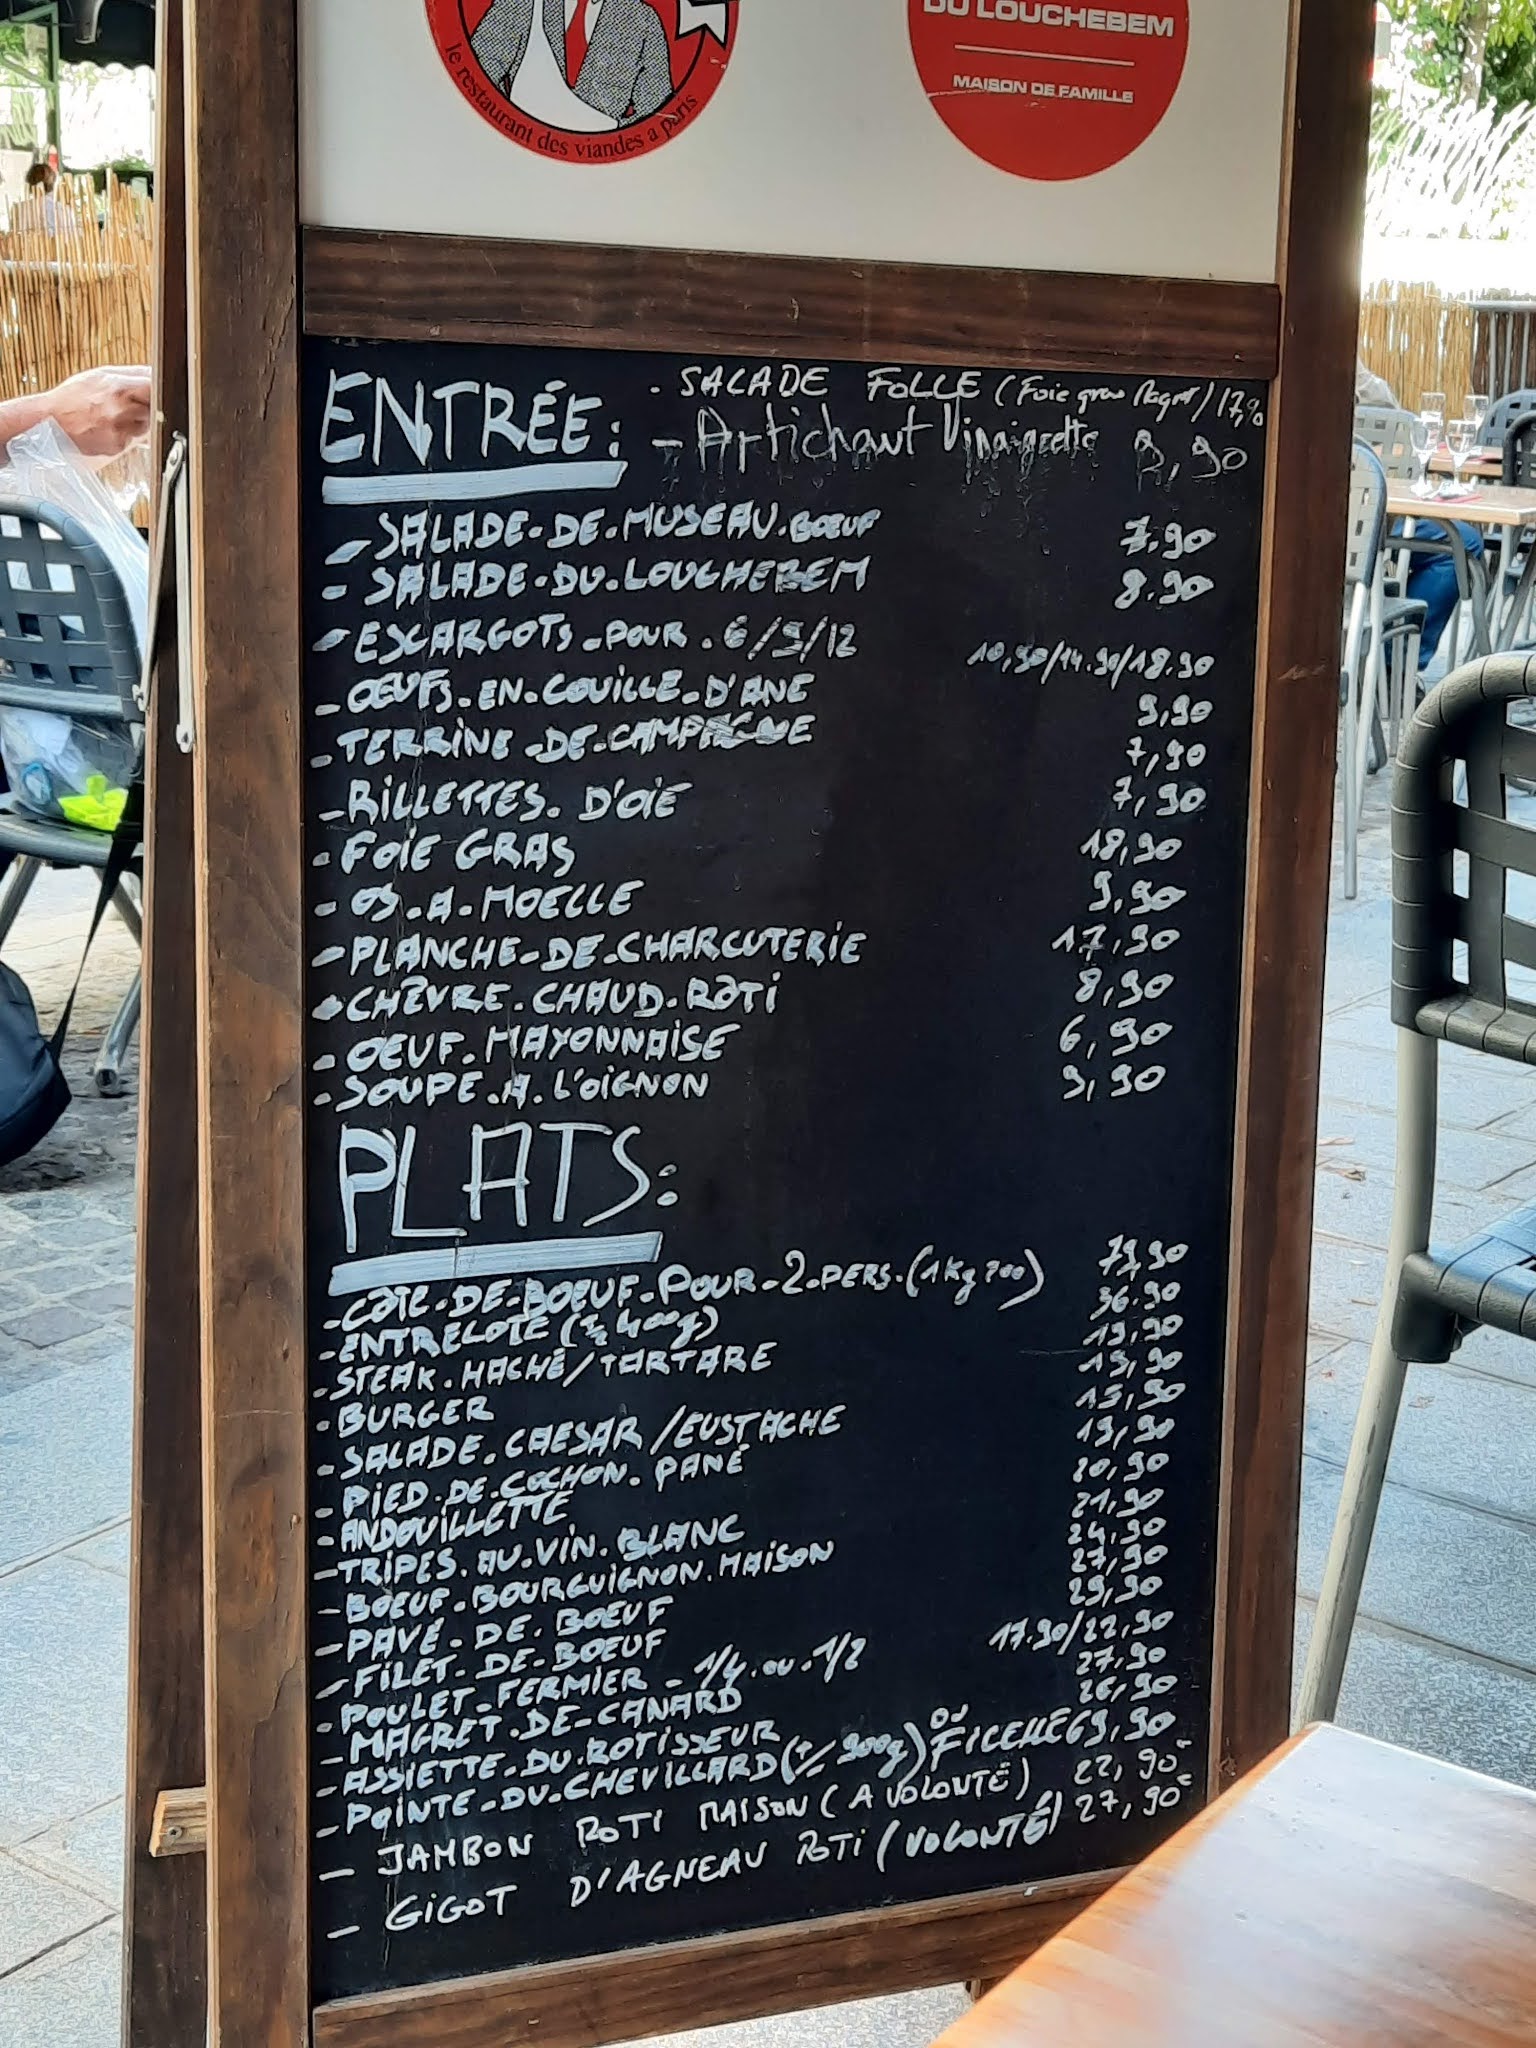 le restaurant des viandes a paris
DU LOUCHEBEM
MAISON DE FAMILLE
ENTRÉE:
- SALADE FOLLE (Foie gras Magret) 17,90
- Artichaut Vinaigrette 9,90
- SALADE-DE-MUSEAU.BŒUF 7.90
- SALADE-DU.LOUCHEBEM 8.90
- ESCARGOTS-POUR.6/9/12 10,90/14.90/18.90
- ŒUFS-EN-COUILLE-D'ANE 9,90
- TERRINE-DE-CAMPAGNE 7,90
- RILLETTES. D'OIE 7,90
- FOIE GRAS 18,90
- OS-A-MOELLE 9,90
- PLANCHE-DE-CHARCUTERIE 17,90
- CHÈVRE.CHAUD.ROTI 8,90
- OEUF.MAYONNAISE 6,90
- SOUPE.A.L'OIGNON 9,90
PLATS:
- COTE-DE-BOEUF-POUR-2-PERS.(1Kg200) 79,90
- ENTRECOTE (± 400g) 36.90
- STEAK.HACHÉ/TARTARE 19,90
- BURGER 19,90
- SALADE.CAESAR/EUSTACHE 15,90
- PIED.DE.COCHON.PANÉ 19,90
- ANDOUILLETTE 20,90
- TRIPES.AU.VIN.BLANC 21,90
- BOEUF.BOURGUIGNON.MAISON 24,90
- PAVÉ-DE-BOEUF 27,90
- FILET-DE-BOEUF 29,90
- POULET-FERMIER-1/4.ou.1/2 17.90/22,90
- MAGRET.DE-CANARD 27,90
- ASSIETTE-DU.ROTISSEUR 26,90
- POINTE-DU-CHEVILLARD (+/- 900g) OU FICELLE 69,90
- JAMBON ROTI MAISON (A VOLONTÉ) 22,90€
- GIGOT D'AGNEAU ROTI (VOLONTÉ) 27,90€